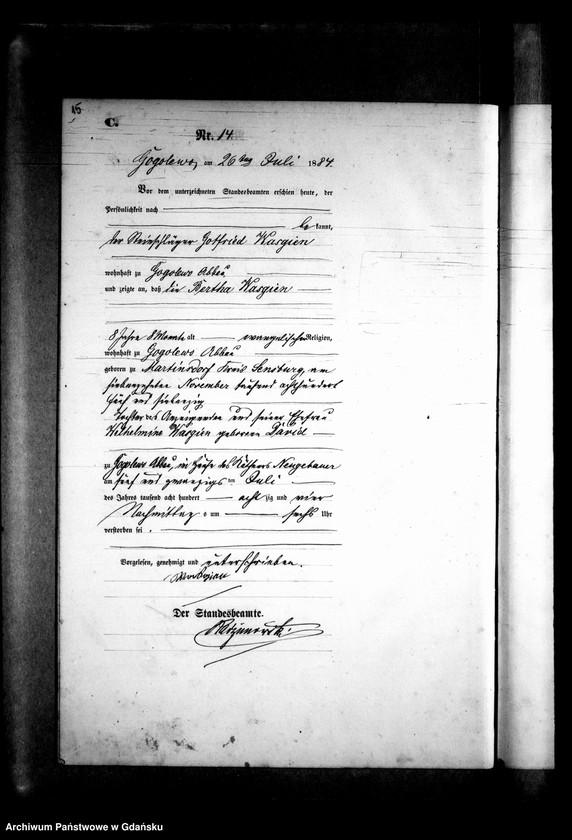 15
C.
Nr. 14
Gogolewo, am 26ten Juli 1884.
Vor dem unterzeichneten Standesbeamten erschien heute, der
Persönlichkeit nach
be kannt,
der Steinschläger Gotfried Kasgien
wohnhaft zu Gogolewo Abbau
und zeigte an, daß die Bertha Kasgien
8 Jahre 8 Monate alt evangelischer Religion,
wohnhaft zu Gogolewo Abbau
geboren zu Martinsdorf Kreis Sensburg, am
siebenzehnten November tausend achthundert
fünf und siebenzig
Tochter des Anzeigenden und seiner Ehefrau
Wilhelmine Kasgien geborenen David
zu Gogolewo Abbau, im Hause des Käthners Neugebauer
am fünf und zwanzigsten Juli
des Jahres tausend acht hundert acht zig und vier
Nachmittag s um sechs Uhr
verstorben sei.
Vorgelesen, genehmigt und unterschrieben.
Der Standesbeamte.
Archiwum Państwowe w Gdańsku